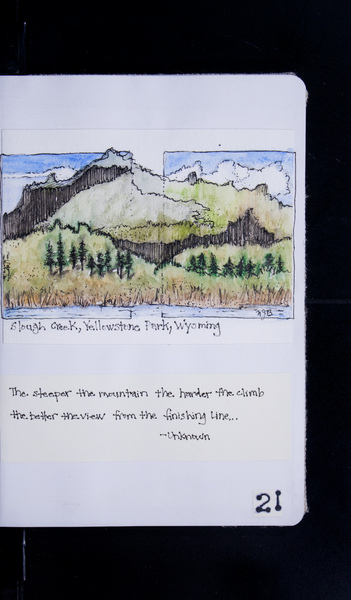 Slough Creek, Yellowstone Park, Wyoming
The steeper the mountain the harder the climb
the better the view from the finishing line...
-Unknown
21